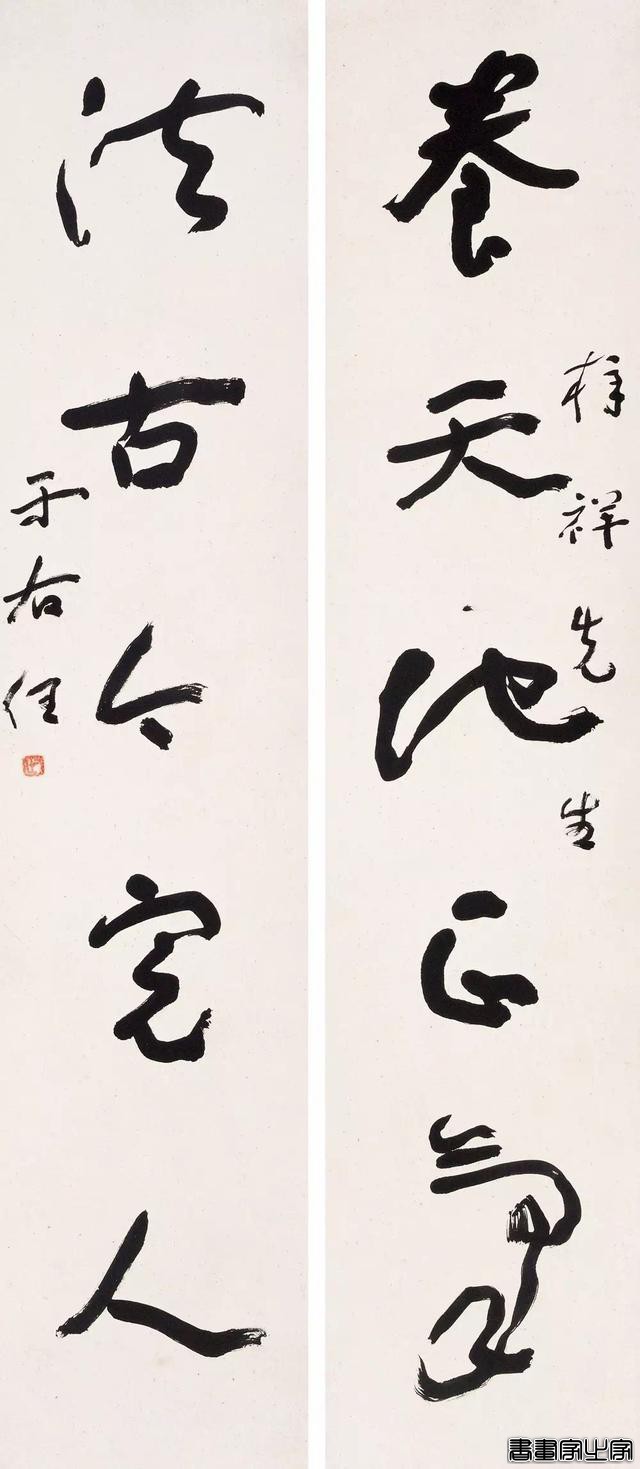 養天地正氣
祥先生
法古今完人
于右任
書畫家之家